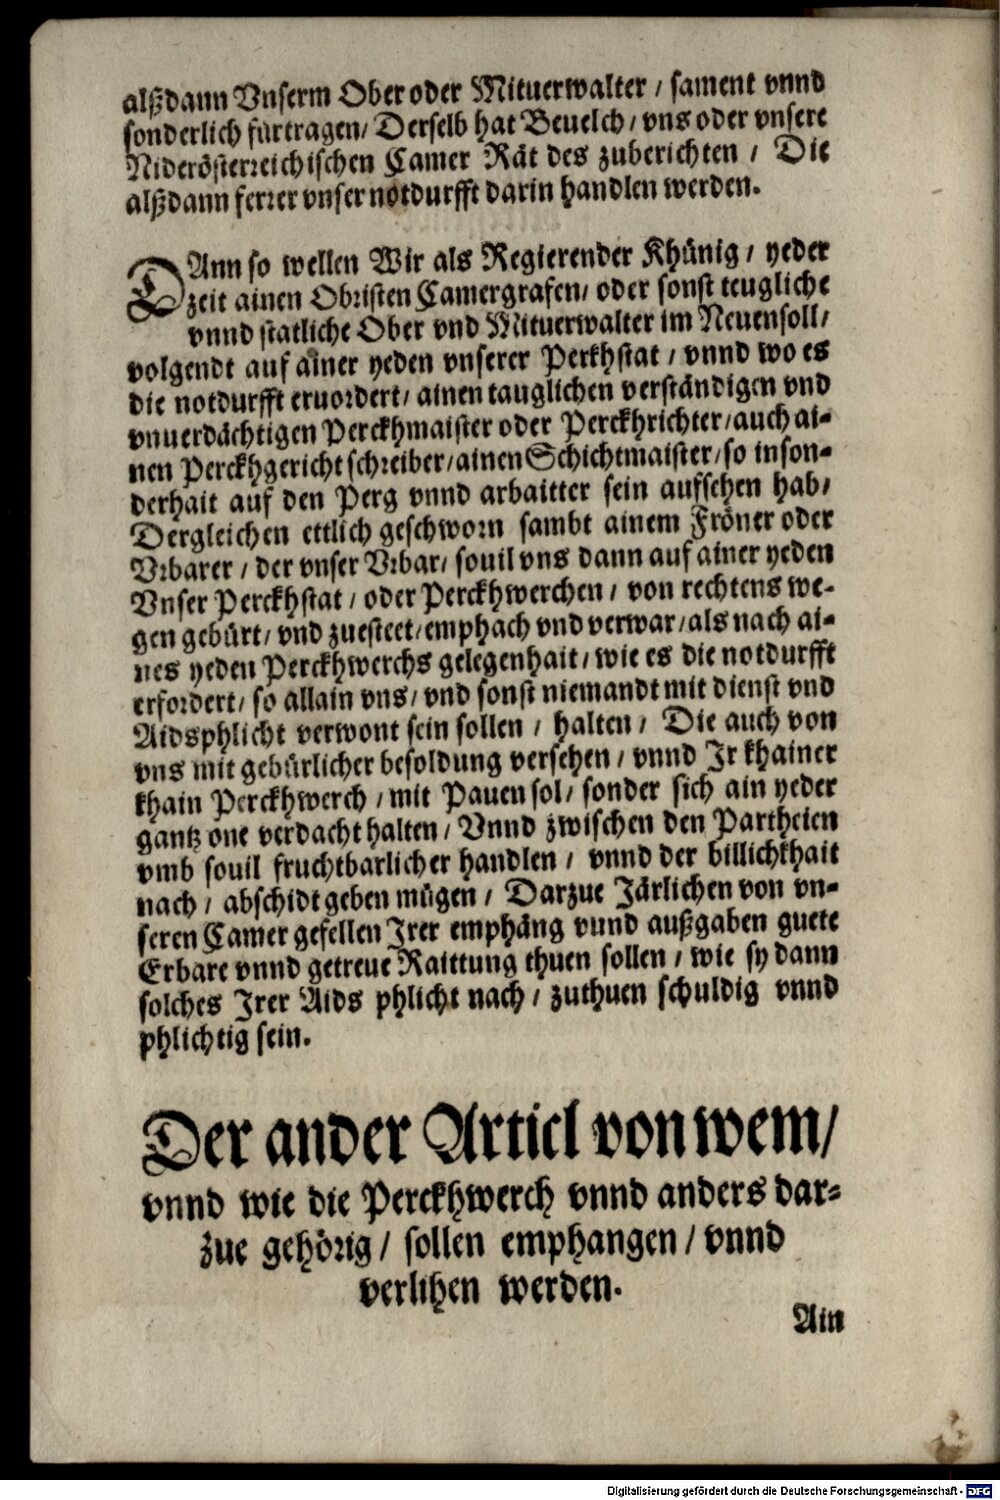 alßdann Vnserm Ober oder Mituerwalter / sament vnnd
sonderlich fürtragen / Derselb hat Beuelch / vns oder vnsere
Niderösterreichischen Camer Rät des zuberichten / Die
alßdann ferrer vnser notdurfft darin handlen werden.
DAnn so wellen Wir als Regierender Khünig / yeder
zeit ainen Obristen Camergrafen / oder sonst teugliche
vnnd statliche Ober vnd Mituerwalter im Neuensoll /
volgendt auf ainer yeden vnserer Perkhstat / vnnd wo es
die notdurfft eruordert / ainen tauglichen verständigen vnd
vnuerdächtigen Perckhmaister oder Perckhrichter / auch ai-
nen Perckhgericht schreiber / ainen Schichtmaister / so inson-
derhait auf den Perg vnnd arbaitter sein aufsehen hab /
Dergleichen ettlich geschworn sambt ainem Fröner oder
Vrbarer / der vnser Vrbar / souil vns dann auf ainer yeden
Vnser Perckhstat / oder Perckhwerchen / von rechtens we-
gen gebürt / vnd zuesteet / emphach vnd verwar / als nach ai-
nes yeden Perckhwerchs gelegenhait / wie es die notdurfft
erfordert / so allain vns / vnd sonst niemandt mit dienst vnd
Aidsphlicht verwont sein sollen / halten / Die auch von
vns mit gebürlicher besoldung versehen / vnnd Ir khainer
khain Perckhwerch / mit Pauen sol / sonder sich ain yeder
gantz one verdacht halten / Vnnd zwischen den Partheien
vmb souil fruchtbarlicher handlen / vnnd der billichkhait
nach / abschidt geben mügen / Darzue Järlichen von vn-
seren Camer gefellen Irer emphäng vnnd außgaben guete
Erbare vnnd getreue Raittung thuen sollen / wie sy dann
solches Irer Aids phlicht nach / zuthuen schuldig vnnd
phlichtig sein.
Der ander Articl von wem /
vnnd wie die Perckhwerch vnnd anders dar-
zue gehörig / sollen emphangen / vnnd
verlihen werden.
Ain
Digitalisierung gefördert durch die Deutsche Forschungsgemeinschaft - DFG